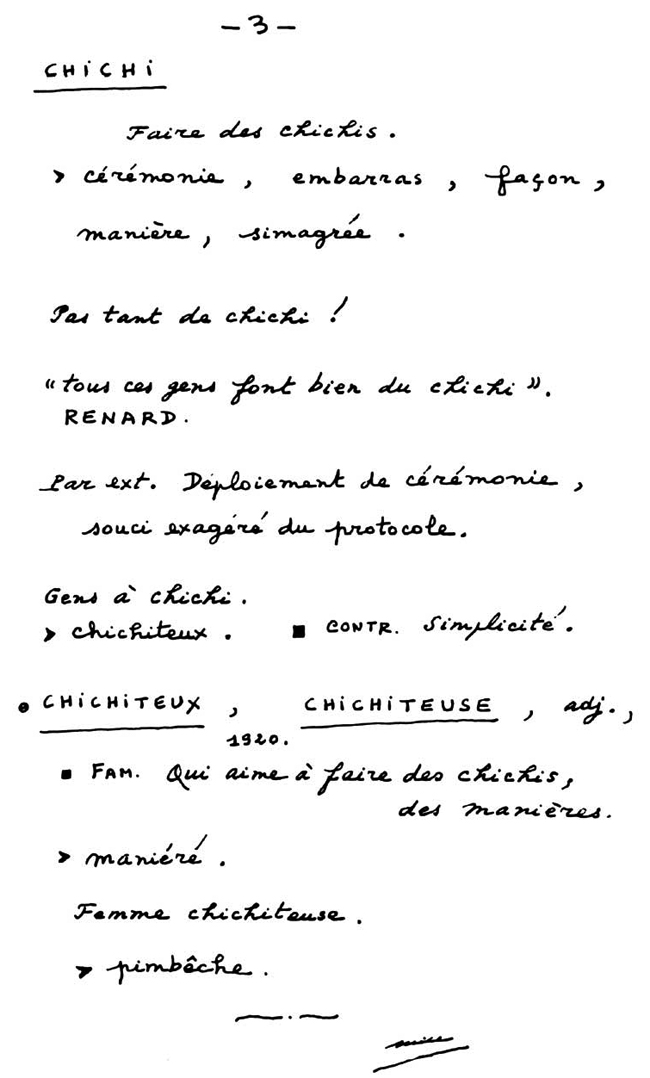 - 3 -
CHiCHi
Faire des chichis.
> cérémonie, embarras, façon,
manière, simagrée.
Pas tant de chichi !
"tous ces gens font bien du chichi".
RENARD.
Par ext. Déploiement de cérémonie,
souci exagéré du protocole.
Gens à chichi.
> chichiteux. ■ CONTR. Simplicité.
• CHiCHiTEUX, CHiCHiTEUSE, adj.,
1920.
▪ FAM. Qui aime à faire des chichis,
des manières.
> maniéré.
Femme chichiteuse.
> pimbêche.
—.—